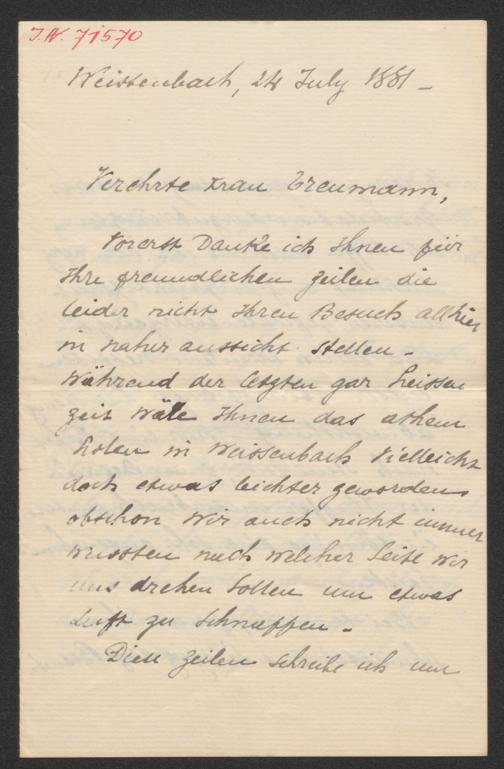 I.N. 71570
Weissenbach, 24 July 1881 –
Verehrte Frau Treumann,
Vorerst Danke ich Ihnen für
Ihre freundlichen zeilen die
leider nicht Ihren Besuch allhier
in naher aussicht stellen –
Während der letzten gar heissen
zeit wäre Ihnen das athem
holen in Weissenbach vielleicht
doch etwas leichter geworden
obschon wir auch nicht immer
wussten nach welcher Seite wir
uns drehen sollen um etwas
Luft zu schnappen –
Diese zeilen schreibe ich um